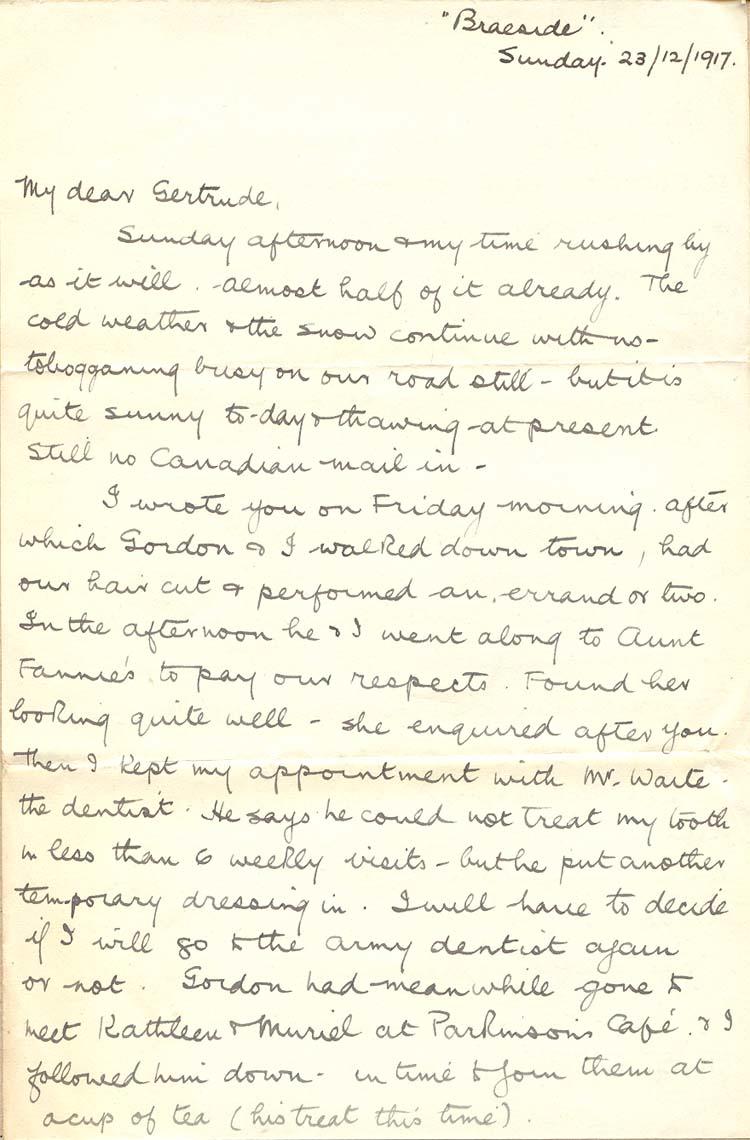 "Braeside".
Sunday. 23/12/1917.
My dear Gertrude,
Sunday afternoon & my time rushing by
as it will. almost half of it already. The
cold weather & the snow continue with us -
tobogganing busy on our road still - but it is
quite sunny to-day & thawing at present.
Still no Canadian mail in -
I wrote you on Friday morning. after
which Gordon & I walked down town, had
our hair cut & performed an errand or two.
In the afternoon he & I went along to Aunt
Fannie's to pay our respects. Found her
looking quite well - she enquired after you.
Then I kept my appointment with Mr. Waite -
the dentist. He says he could not treat my tooth
in less than 6 weekly visits - but he put another
temporary dressing in. I will have to decide
if I will go to the army dentist again
or not. Gordon had meanwhile gone to
meet Kathleen & Muriel at Parkinson's Café. & I
followed him down - in time to join them at
a cup of tea (his treat this time).